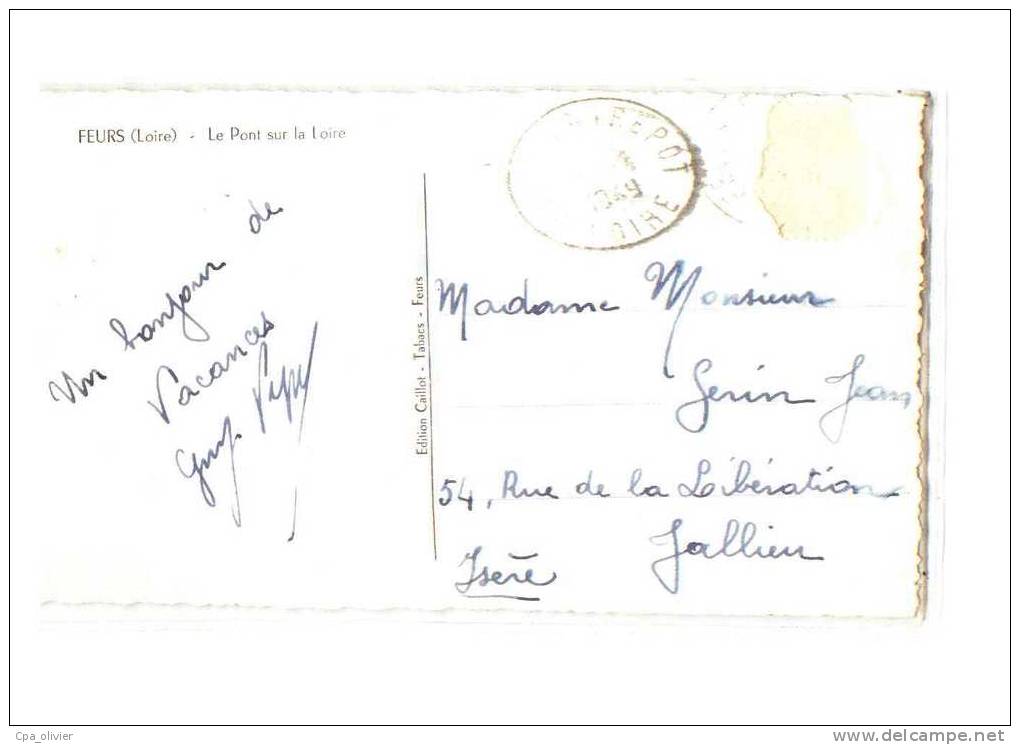 FEURS (Loire) - Le Pont sur la Loire
Un bonjour de
Vacances
Guy.
Edition Caillot - Tabacs - Feurs
1949
LOIRE
Madame Monsieur
Gerin Jean
54, Rue de la Libération
Jallieu
Isère
Cpa_olivier
delcampe.net